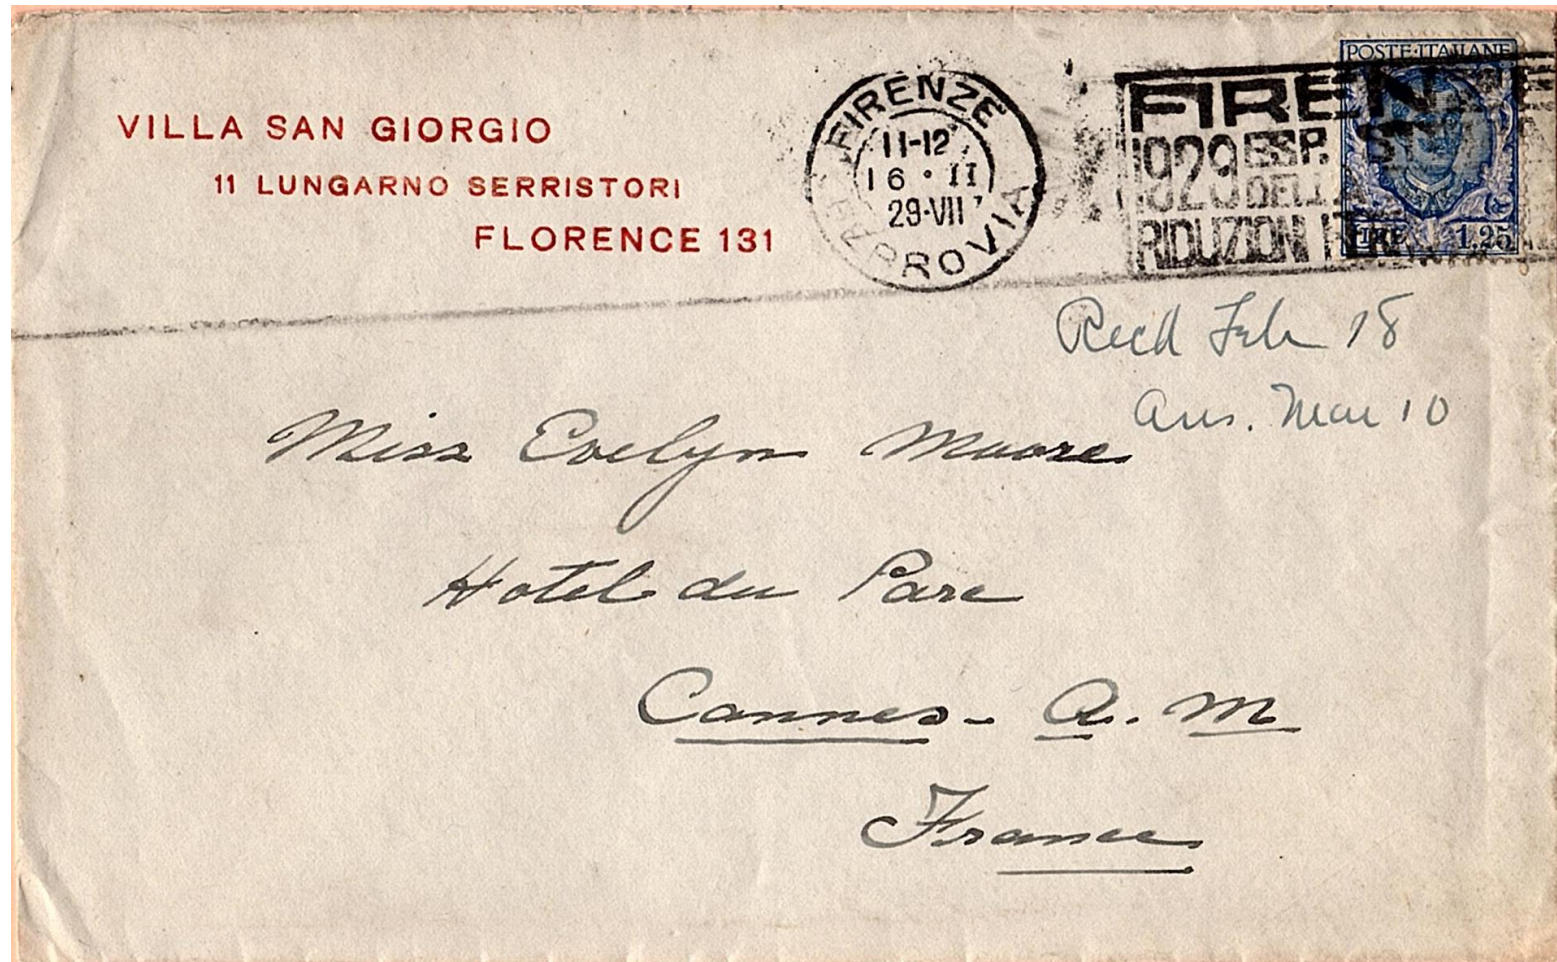 VILLA SAN GIORGIO
11 LUNGARNO SERRISTORI
FLORENCE 131
FIRENZE
11-12
16 • II
29-VII
FERROVIA
FIREN
1929 ESP. ST
DELL'A
RIDUZIONI FER
POSTE·ITALIANE
LIRE 1.25
Recd Feb 18
Ans. Mar 10
Miss Evelyn Moore
Hotel du Parc
Cannes - A. M
France